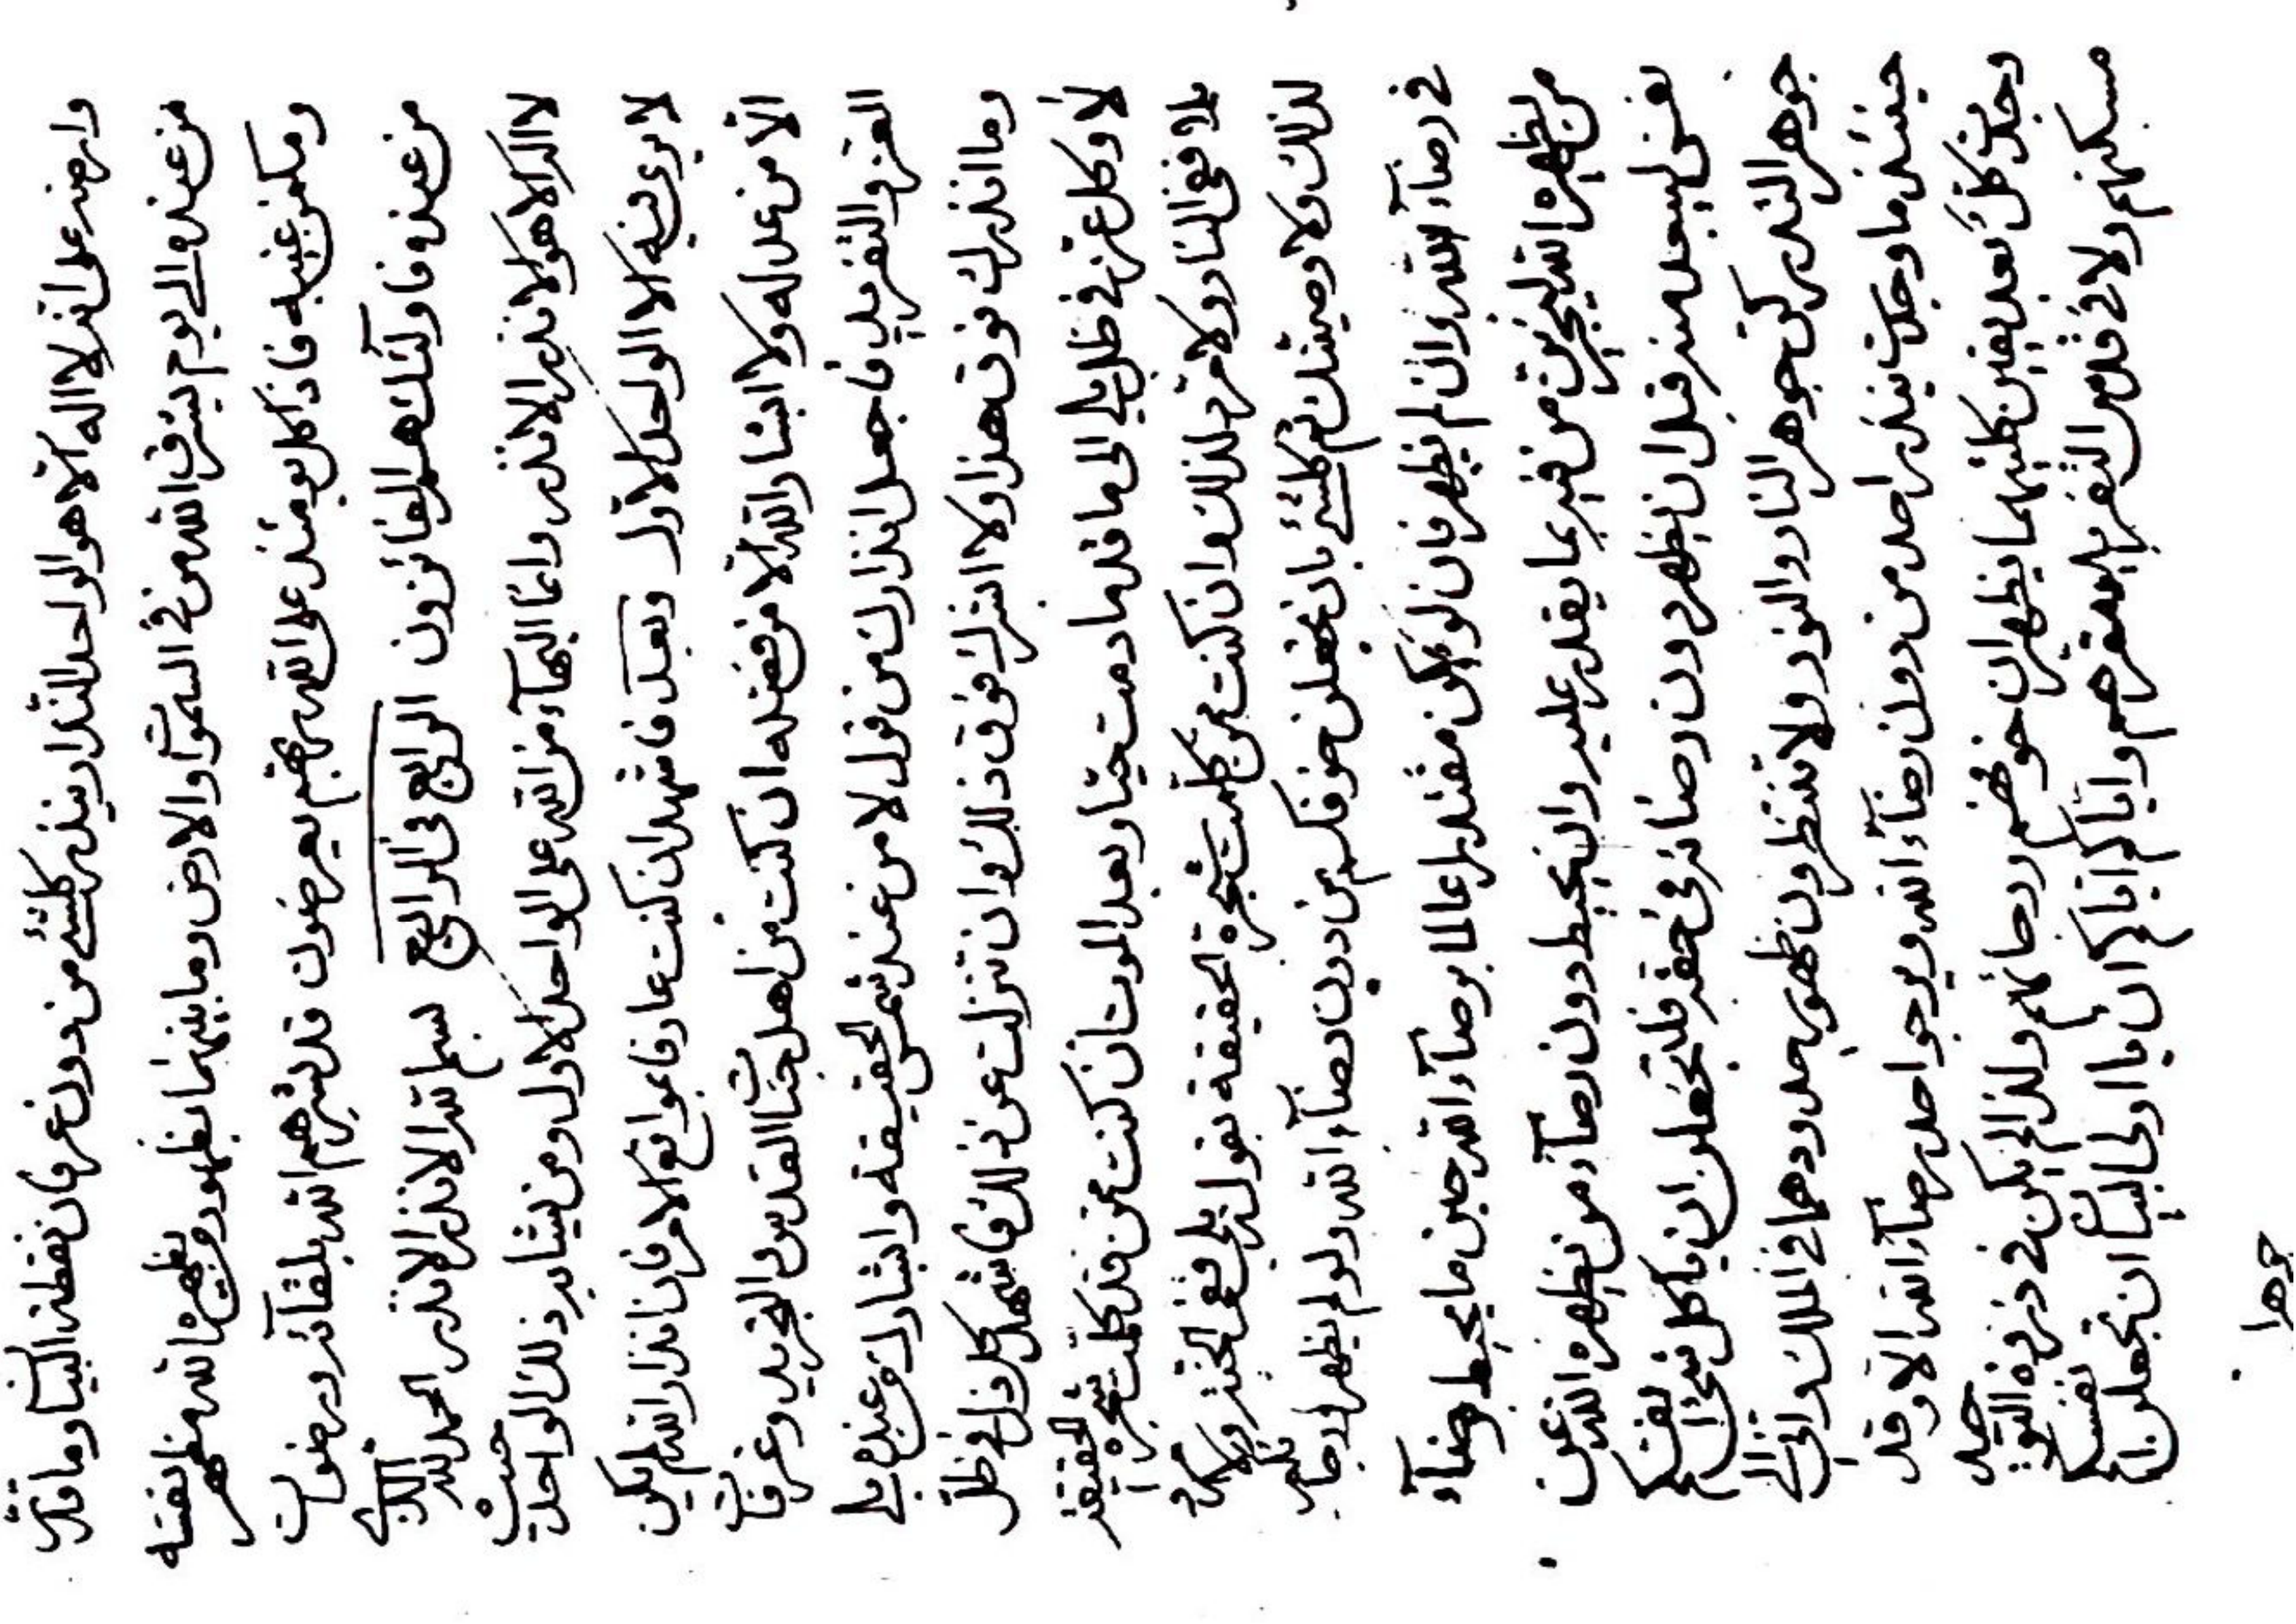 وارضه على انه لا اله الا هو الواحد النذار ينذر كلشئ من دون عرفان نقطة البيان وما قدر
من عنده والى يوم يشرق الله من في السموات والارض وما بينهما بظهور من يظهره الله مظهر نفسه
ومكمن غيبه فاذا كل يومئذ على الله ربهم يعرضون قد بشرهم الله بلقائه ورضوان
من عنده فاولئك هم الفائزون الرابع في الرابع بسم الله الانذر الانذر الحمد لله الذي
لا اله الا هو الانذر الانذر وانما البهاء من الله على الواحد الاول ومن يشابه ذلك الواحد حيث
لا يرى فيه الا الواحد الاول وبعد فاشهد ان كنت عارفا بمواقع الامر فان انذار الله لم يكن
الا من عدله ولا ابشار الله الا من فضله ان كنت من اهل جنات القدس والتجريد وعرفات
العز والتفريد فاجعل انذارك من قول لا من عند شمس الحقيقة وابشارك من عنده بلى
وما انذرك فوق هذا ولا ابشرك فوق ذلك وان تنزلت عن ذلك فاشهد كل ذل في ظل
لا وكل عز في ظل بلى الى ما قد ما دمت حيا وبعد الموت ان كنت ممن قد كلمت شجرة الحقيقة
بلا ففي النار ولا مرد لذلك وان كنت ممن كلمت شجرة الحقيقة بقول بلى ففي الجنة ولا مرد
لذلك ولا وصيتك ثم كلشئ بان تجعلن خوفكم من دون رضاء الله ولو لم يظهر ورجائكم
في رضاء الله وان لم يظهر فان لو يكن مقتدرا عالما برضاء الله حين ما يحيط برضاء
من يظهره الله ليخرجن من بما يقدر عليه وان يحيط دون رضاء من يظهره الله عن
نفس ليبعد منه قبل ان يظهر دون رضائه في حقه فلتجعلن ان يا كل شئ انفسكم
جوهر جوهر النار والنور ولا تنتظرون ظهور حدودهما في الملك واني الى
حينئذ ما وجدت احد من دون رضاء الله ويرجو احد رضاء الله الا وقد
وجدت كل بعد يقين كلتيهما يظهران خوفهم ورجائهم ولذا لم يكن في ذروة التوحيد
مسكنهم ولا في قدس التفريد مقرهم واياكم اياكم ان يا اولى البيان ان تجعلن انفسكم
جوهرا